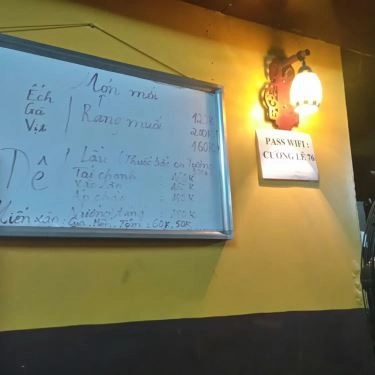 Món mới
Ếch
Gà Rang muối
Vịt 160K
Dê Lẩu (Thuốc bắc,
Tái chanh : 150K
Xào lăn : 150K
Áp chảo : 150K
Nướng tảng : 150K
Miến xào : Gà, Mền, Tôm : 60K, 50K
PASS WIFI:
CUONG LE 76